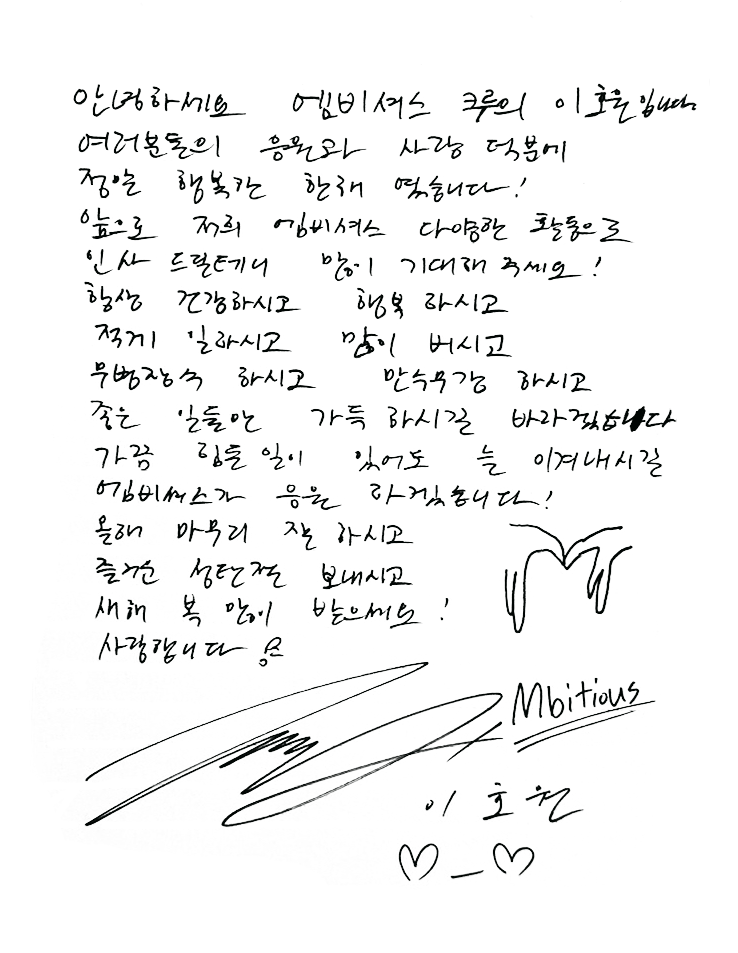 안녕하세요 엠비셔스 크루의 이호원입니다.
여러분들의 응원과 사랑 덕분에
정말 행복한 한해 였습니다!
앞으로 저희 엠비셔스 다양한 활동으로
인사 드릴테니 많이 기대해 주세요!
항상 건강하시고 행복 하시고
적게 일하시고 많이 버시고
무병장수 하시고 만수무강 하시고
좋은 일들만 가득 하시길 바라겠습니다
가끔 힘든 일이 있어도 늘 이겨내시길
엠비셔스가 응원 하겠습니다!
올해 마무리 잘 하시고
즐거운 성탄절 보내시고
새해 복 많이 받으세요!
사랑합니다
Mbitious
이호원
♡_♡